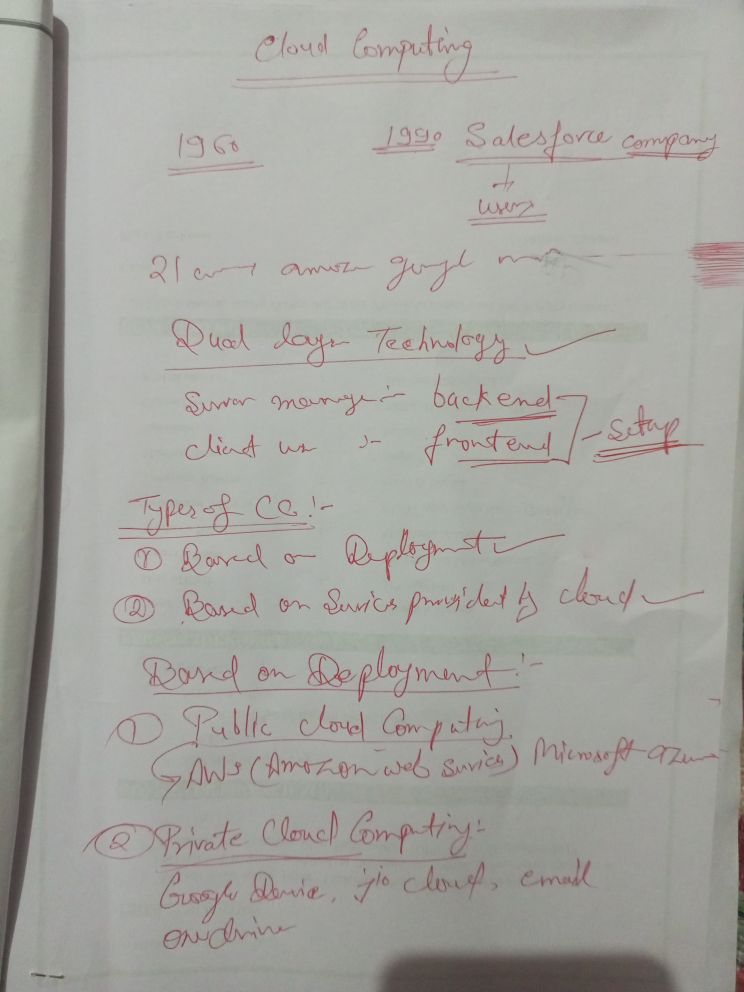 Cloud Computing
1960 1990 Salesforce company
users
21 google
Dual layer Technology
Server manage :- backend
client use :- frontend - Setup
Types of CC :-
① Based on Deployment
② Based on Services provided by cloud
Based on Deployment :-
① Public cloud Computing
AWS (Amazon web services) Microsoft azure
② Private Cloud Computing :-
Google Device, jio cloud, email
onedrive